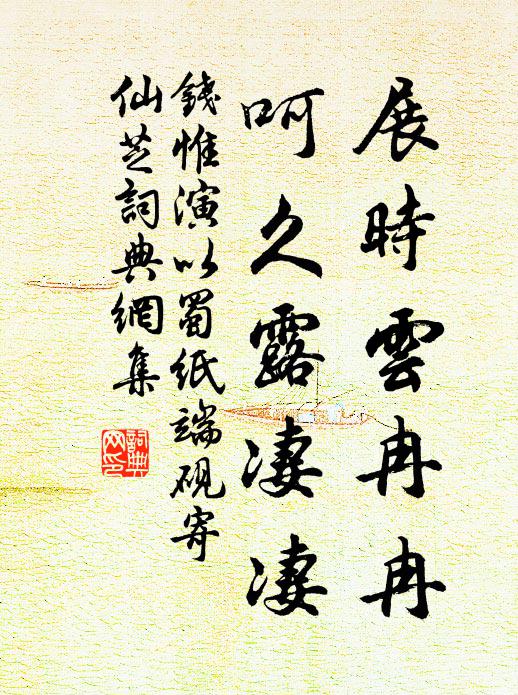 展時雲冉冉
呵久露淒淒
錢惟演以蜀紙端硯寄
仙芝詞典網集
詞典網印